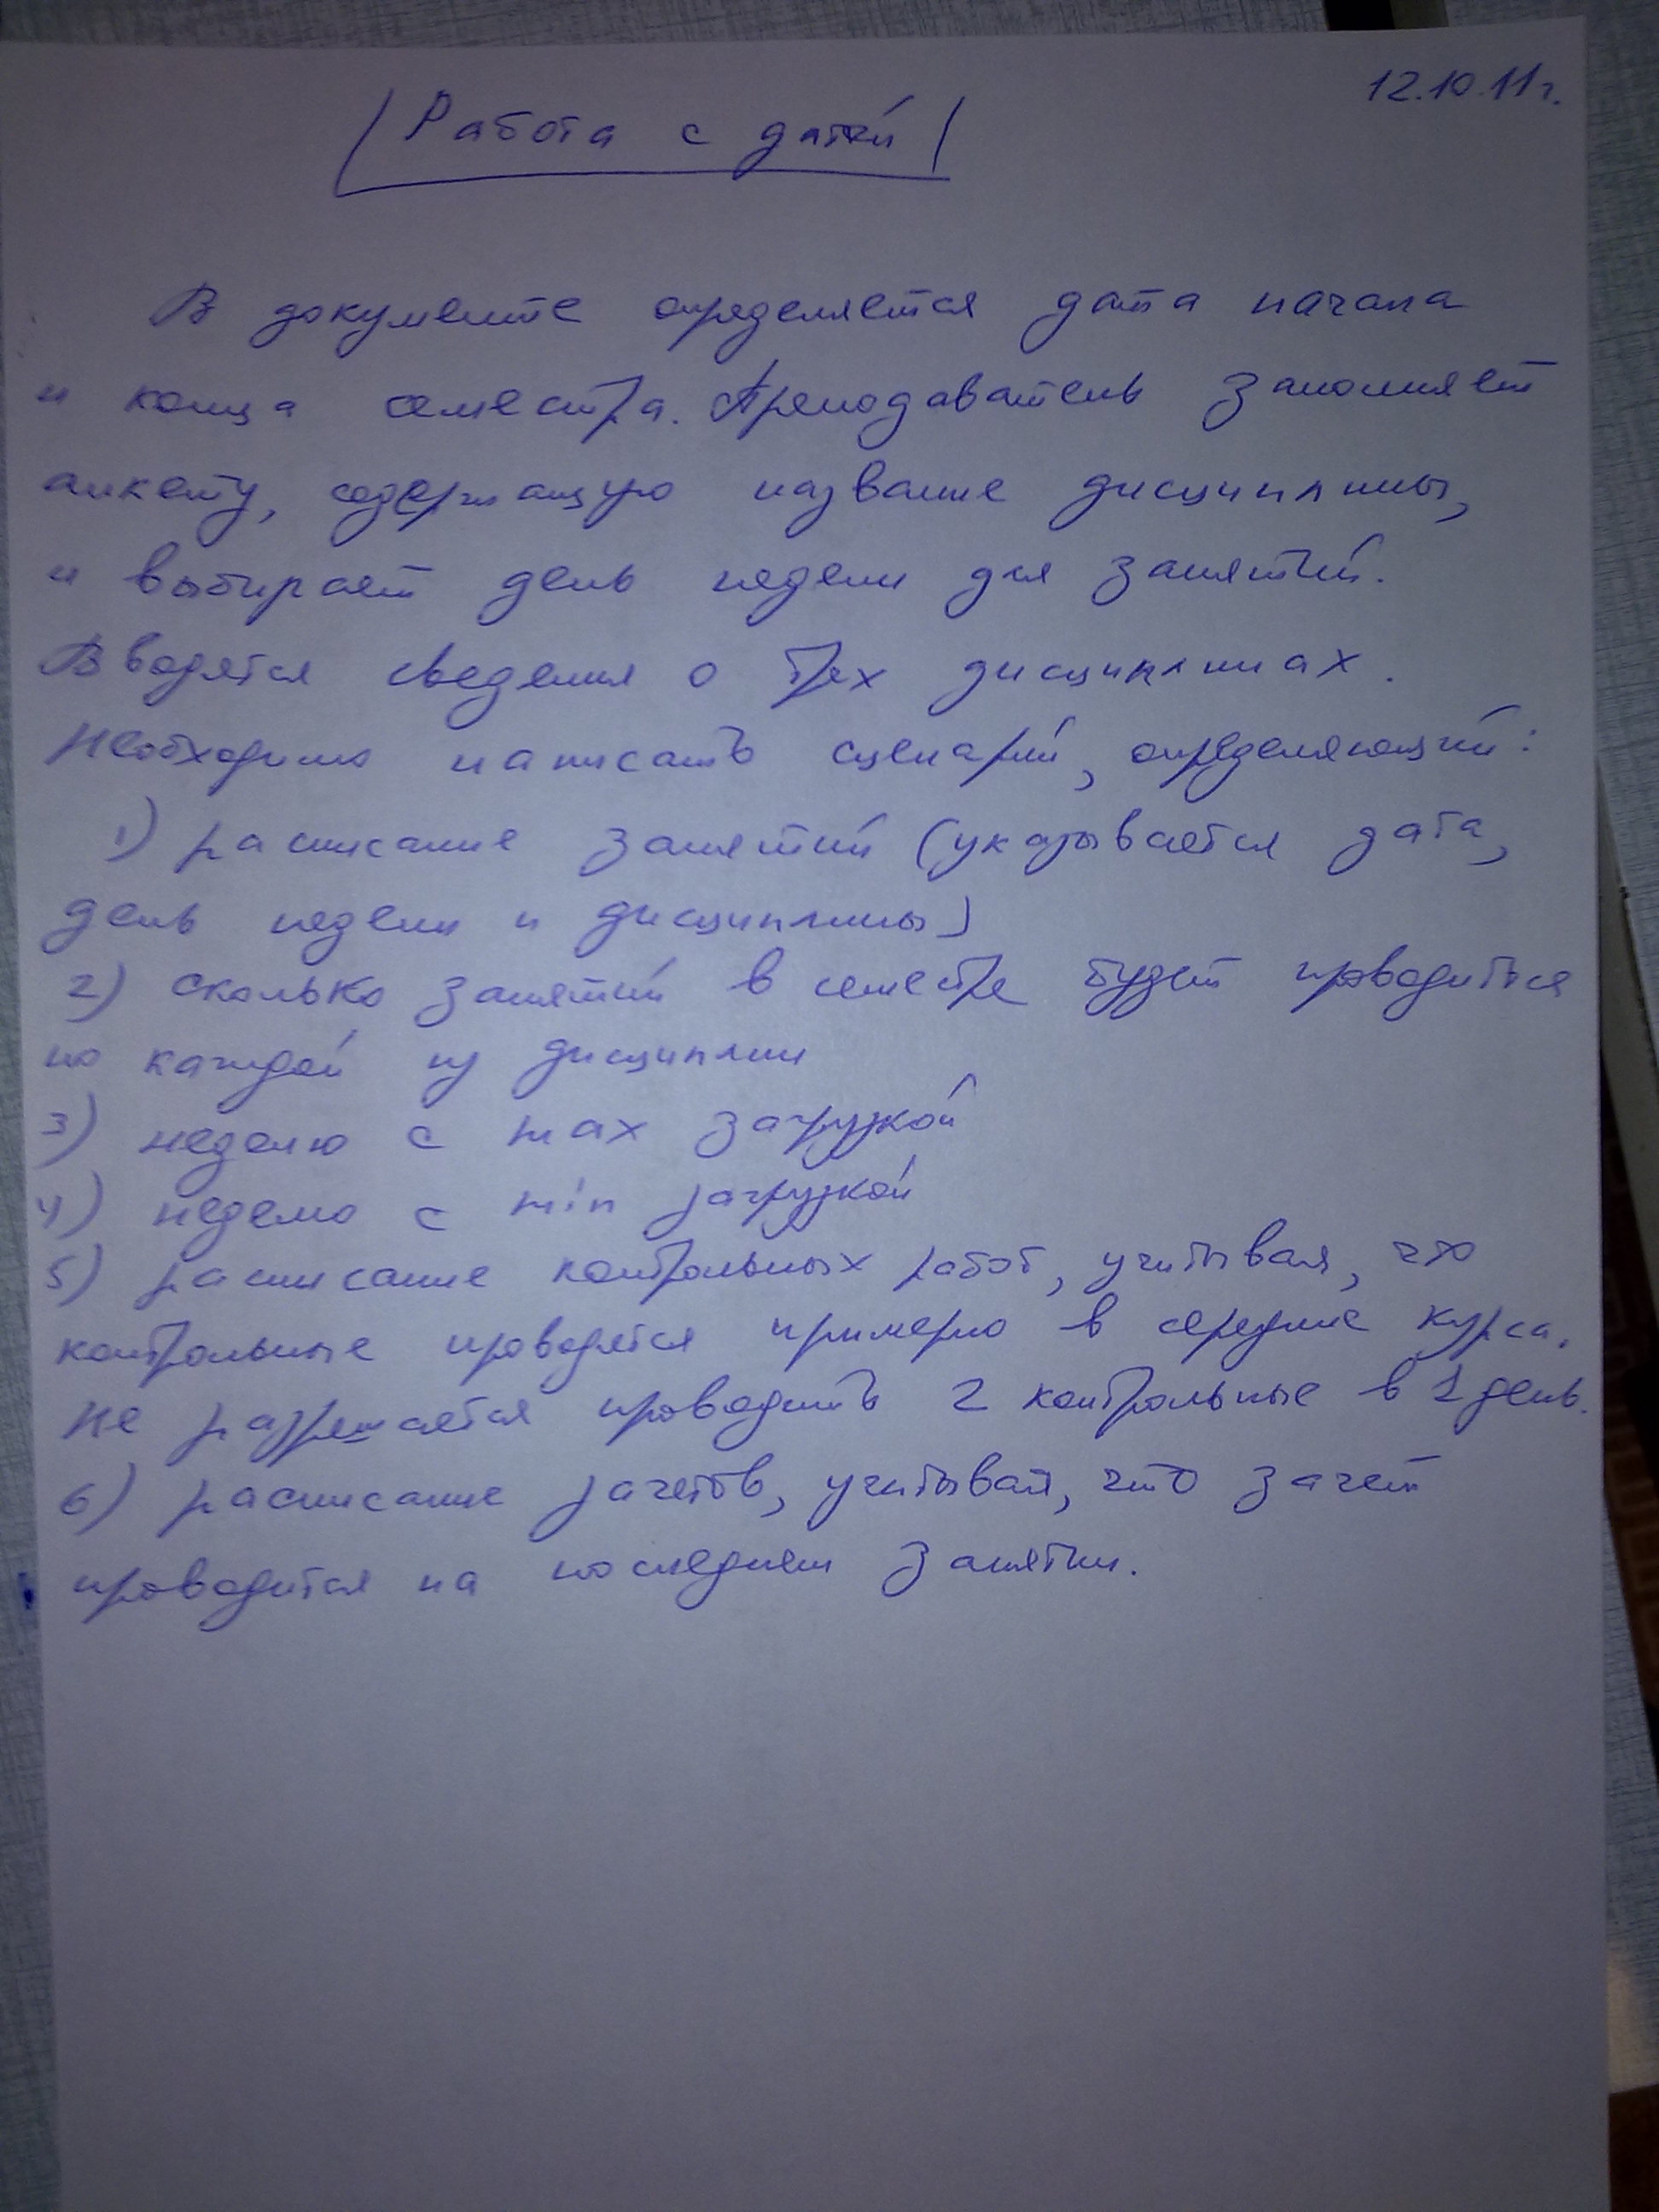 12.10.11г.
Работа с датой
В документе определяется дата начала
и конца семестра. Преподаватель заполняет
анкету, содержащую название дисциплины,
и выбирает день недели для занятий.
Вводятся сведения о трех дисциплинах.
Необходимо написать сценарий, определяющий:
1) расписание занятий (указывается дата,
день недели и дисциплины)
2) сколько занятий в семестре будет проводиться
по каждой из дисциплин
3) неделю с max загрузкой
4) неделю с min загрузкой
5) расписание контрольных работ, учитывая, что
контрольные проводятся примерно в середине курса.
Не разрешается проводить 2 контрольные в 1 день.
6) расписание зачетов, учитывая, что зачет
проводится на последнем занятии.